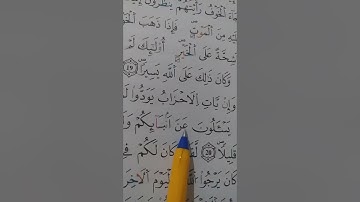 الْخَوْفُ رَأَيْتَهُمْ يَنْظُرُونَ
مِنَ الْمَوْتِ فَإِذَا ذَهَبَ الْخَ
شِحَّةً عَلَى الْخَيْرِ أُولَٰئِكَ لَمْ
وَكَانَ ذَٰلِكَ عَلَى اللَّهِ يَسِيرًا ١٩
وَإِنْ يَأْتِ الْأَحْزَابُ يَوَدُّوا
يَسْـَٔلُونَ عَنْ أَنْبَائِكُمْ وَ
قَلِيلًا ٢٠ لَقَدْ كَانَ لَكُمْ فِي
كَانَ يَرْجُوا اللَّهَ وَالْيَوْمَ الْآخِرَ